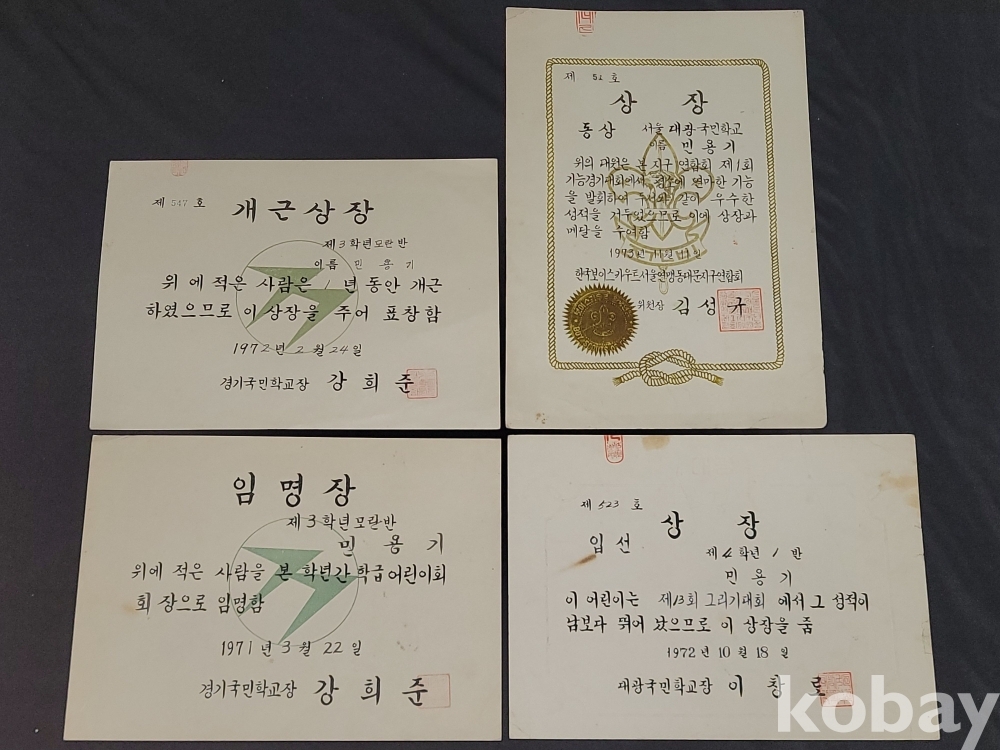 제 547 호
개근상장
제3학년모란반
이름 민 용 기
위에 적은 사람은 1년 동안 개근
하였으므로 이 상장을 주어 표창함
1972년 2월 24일
경기국민학교장 강희준
제 51 호
상 장
동상 서울 대광국민학교
이름 민용기
위의 대원은 본 지구 연합회 제1회
기능경기대회에서 평소에 연마한 기능
을 발휘하여 같이 우수한
성적을 거두었으므로 이에 상장과
메달을 수여함
1973년 11월 11일
한국보이스카우트서울연맹동대문지구연합회
위원장 김성규
임명장
제3학년모란반
민 용 기
위에 적은 사람을 본 학년간 학급어린이회
회장으로 임명함
1971년 3월 22일
경기국민학교장 강희준
제 523 호
상 장
입선
제4학년 1반
민용기
이 어린이는 제13회 그리기대회에서 그 성적이
남보다 뛰어 났으므로 이 상장을 줌
1972년 10월 18일
대광국민학교장 이창로
kobay